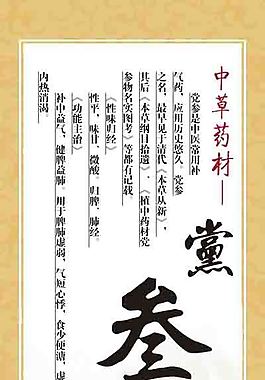 中草药材—
黨
叁
党参是中医常用补
气药，应用历史悠久。党参
之名，最早见于清代《本草从新》，
其后《本草纲目拾遗》、《植中药材党
参物名实图考》等都有记载。
〈性味归经〉
性平，味甘，微酸。归脾、肺经。
〈功能主治〉
补中益气，健脾益肺。用于脾肺虚弱，气短心悸，食少便溏，虚
内热消渴。